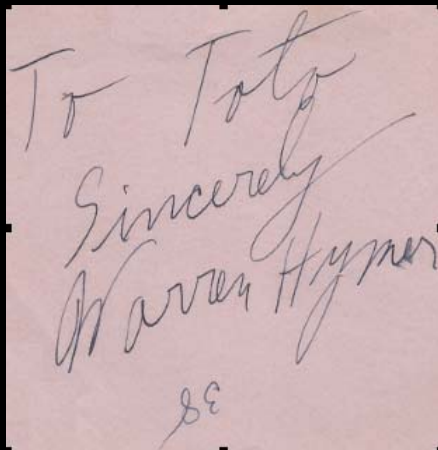 To Toto
Sincerely
Warren Hymer
38